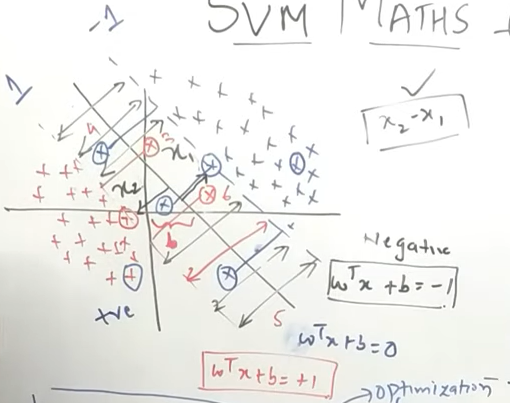 -1
SVM MATHS
1
x₂-x₁
4
3
x₁
x₂
6
b
2
Negative
wᵀx + b = -1
5
+ve
wᵀx+b=0
wᵀx+b=+1
optimization